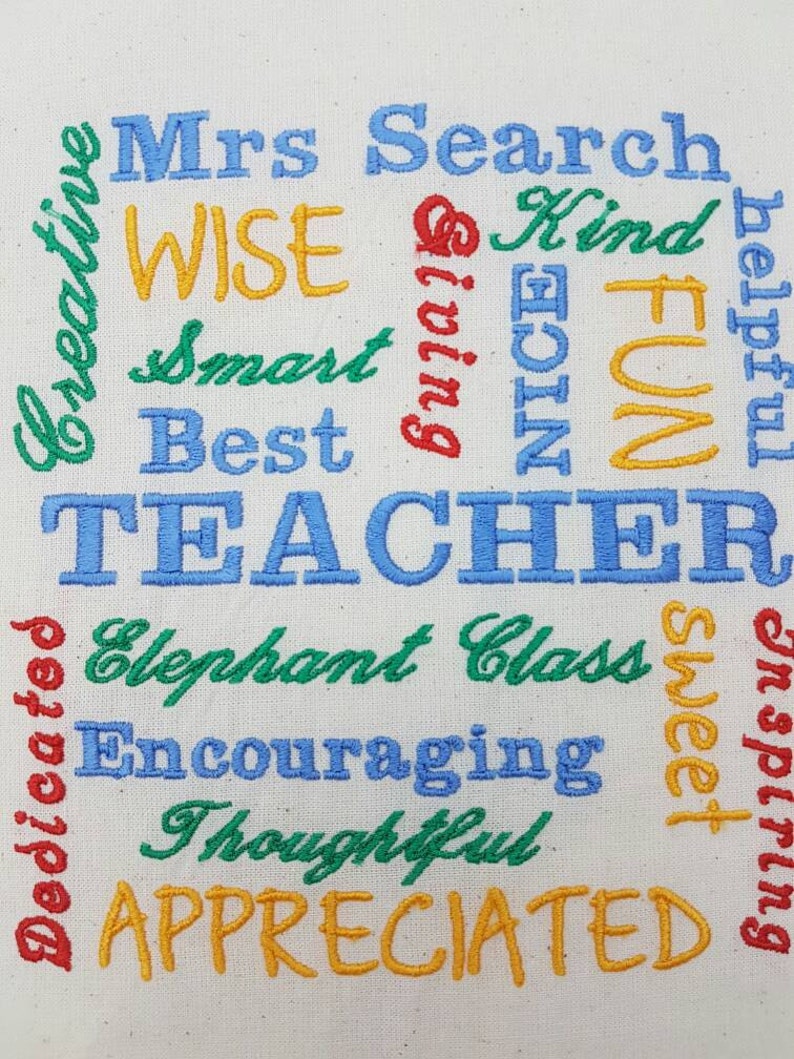 Mrs Search
Creative
WISE
Giving
Kind
helpful
Smart
NICE
FUN
Best
TEACHER
Dedicated
Elephant Class
Sweet
Inspiring
Encouraging
Thoughtful
APPRECIATED